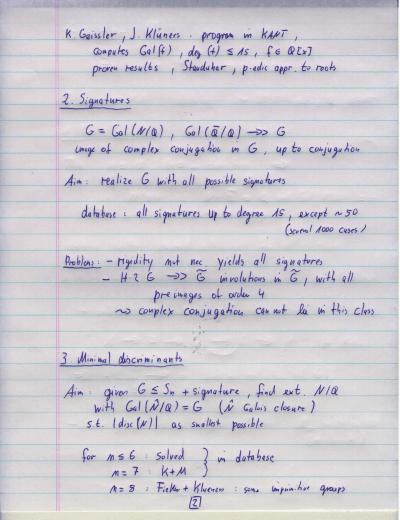 K. Geissler, J. Klüners . program in KANT,
computes Gal(f), deg(f) ≤ 15, f ∈ Q[x]
proven results, Stauduhar, p-adic appr. to roots
2. Signatures
G = Gal(N/Q), Gal(Q̄/Q) →> G
image of complex conjugation in G, up to conjugation
Aim: realize G with all possible signatures
database: all signatures up to degree 15, except ~ 50
(several 1000 cases!)
Problems: - rigidity not nec. yields all signatures
- H ≥ G →> G̃ involutions in G̃, with all
preimages of order 4
⤳ complex conjugation can not lie in this class
3. Minimal discriminants
Aim: given G ≤ Sn + signature, find ext. N/Q
with Gal(N̂/Q) = G (N̂ Galois closure)
s.t. |disc(N)| as smallest possible
for n ≤ 6 : solved } in database
n = 7 : K+M }
n = 8 : Fieker + Klueners : some imprimitive groups
2